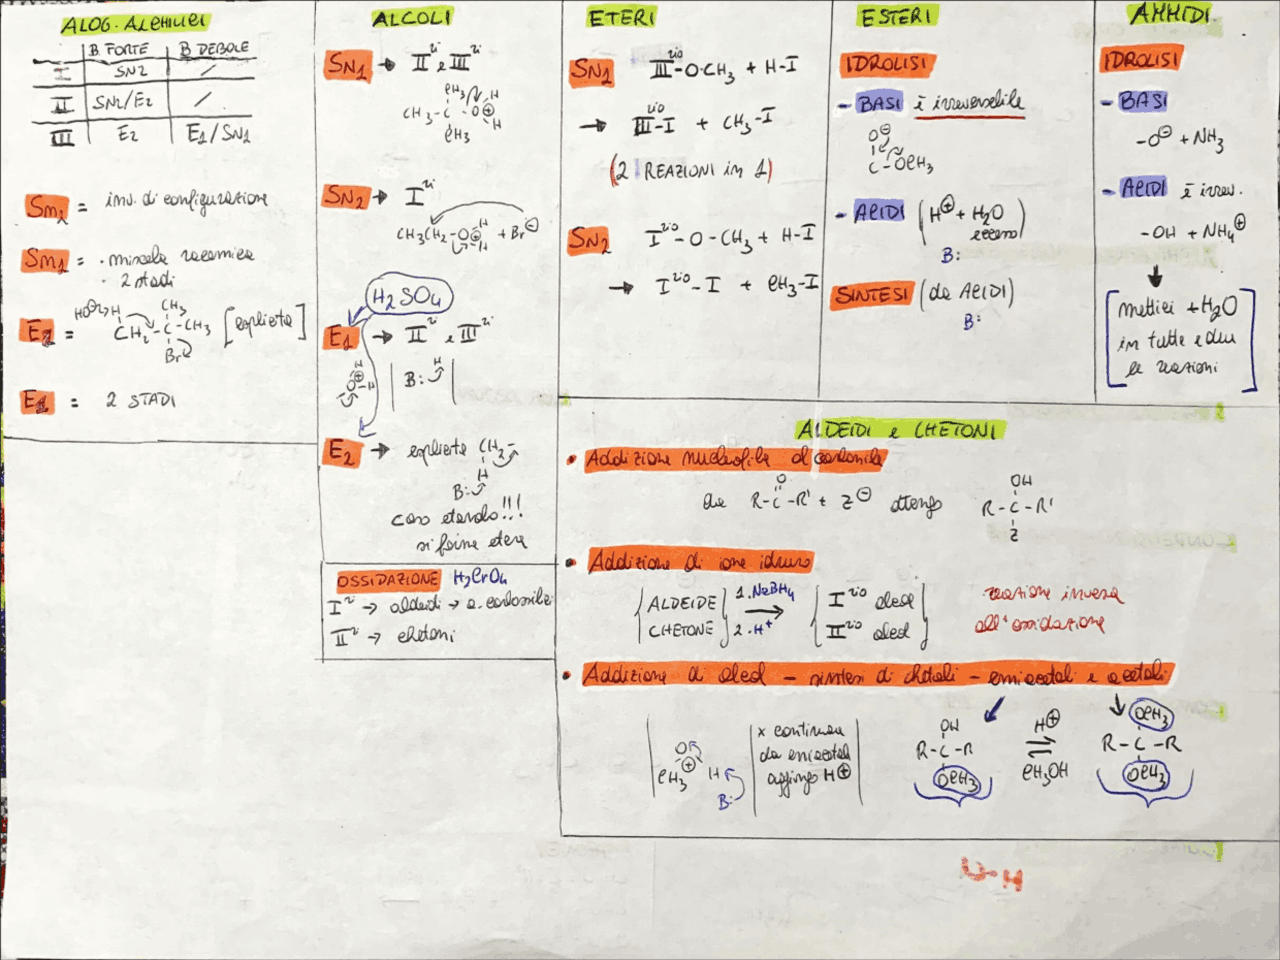 ALOG. ALCHILICI
B FORTE B DEBOLE
I SN2 /
II SN2/E2 /
III E2 E1/SN1
SN2 = inv. di configurazione
SN1 = · miscela racemica
· 2 stadi
E2 = HO⊖ H
CH3
CH2-C-CH3 [
Br
E1 = 2 STADI
ALCOLI
SN1 → II e III
CH3 H
CH3-C-O⊕
CH3 H
SN2 → I
CH3CH2-O⊕ H H + Br⊖
H2SO4
E1 → II e III
H
O⊕-H
B: H
E2 → CH2-
H
B:
caso etanolo!!!
si forma etere
OSSIDAZIONE H2CrO4
I → aldeidi → a. carbossilici
II → chetoni
ETERI
SN1 III-O-CH3 + H-I
→ III-I + CH3-I
(2 REAZIONI in 1)
SN2 I-O-CH3 + H-I
→ I-I + CH3-I
ESTERI
IDROLISI
- BASI è irreversibile
O⊖
C-OCH3
- ACIDI (H⊕ + H2O
eccesso)
B:
SINTESI (da ACIDI)
B:
AMMIDI
IDROLISI
- BASI
-O⊖ + NH3
- ACIDI è irrev.
-OH + NH4⊕
[mettici + H2O
in tutte e due
le reazioni]
ALDEIDI e CHETONI
• Addizione nucleofila al carbonile
Da R-C-R' + Z⊖ ottengo
O
OH
R-C-R'
Z
• Addizione di ione idruro
ALDEIDE
CHETONE
1. NaBH4
2. H+
I alcol
II alcol
reazione inversa
all'ossidazione
• Addizione di alcol - sintesi di chetali - emiacetali e acetali
O
⊕
CH3 H
B:
x continuare
da emiacetale
aggiungo H⊕
OH
R-C-R
OCH3
H⊕
CH3OH
OCH3
R-C-R
OCH3